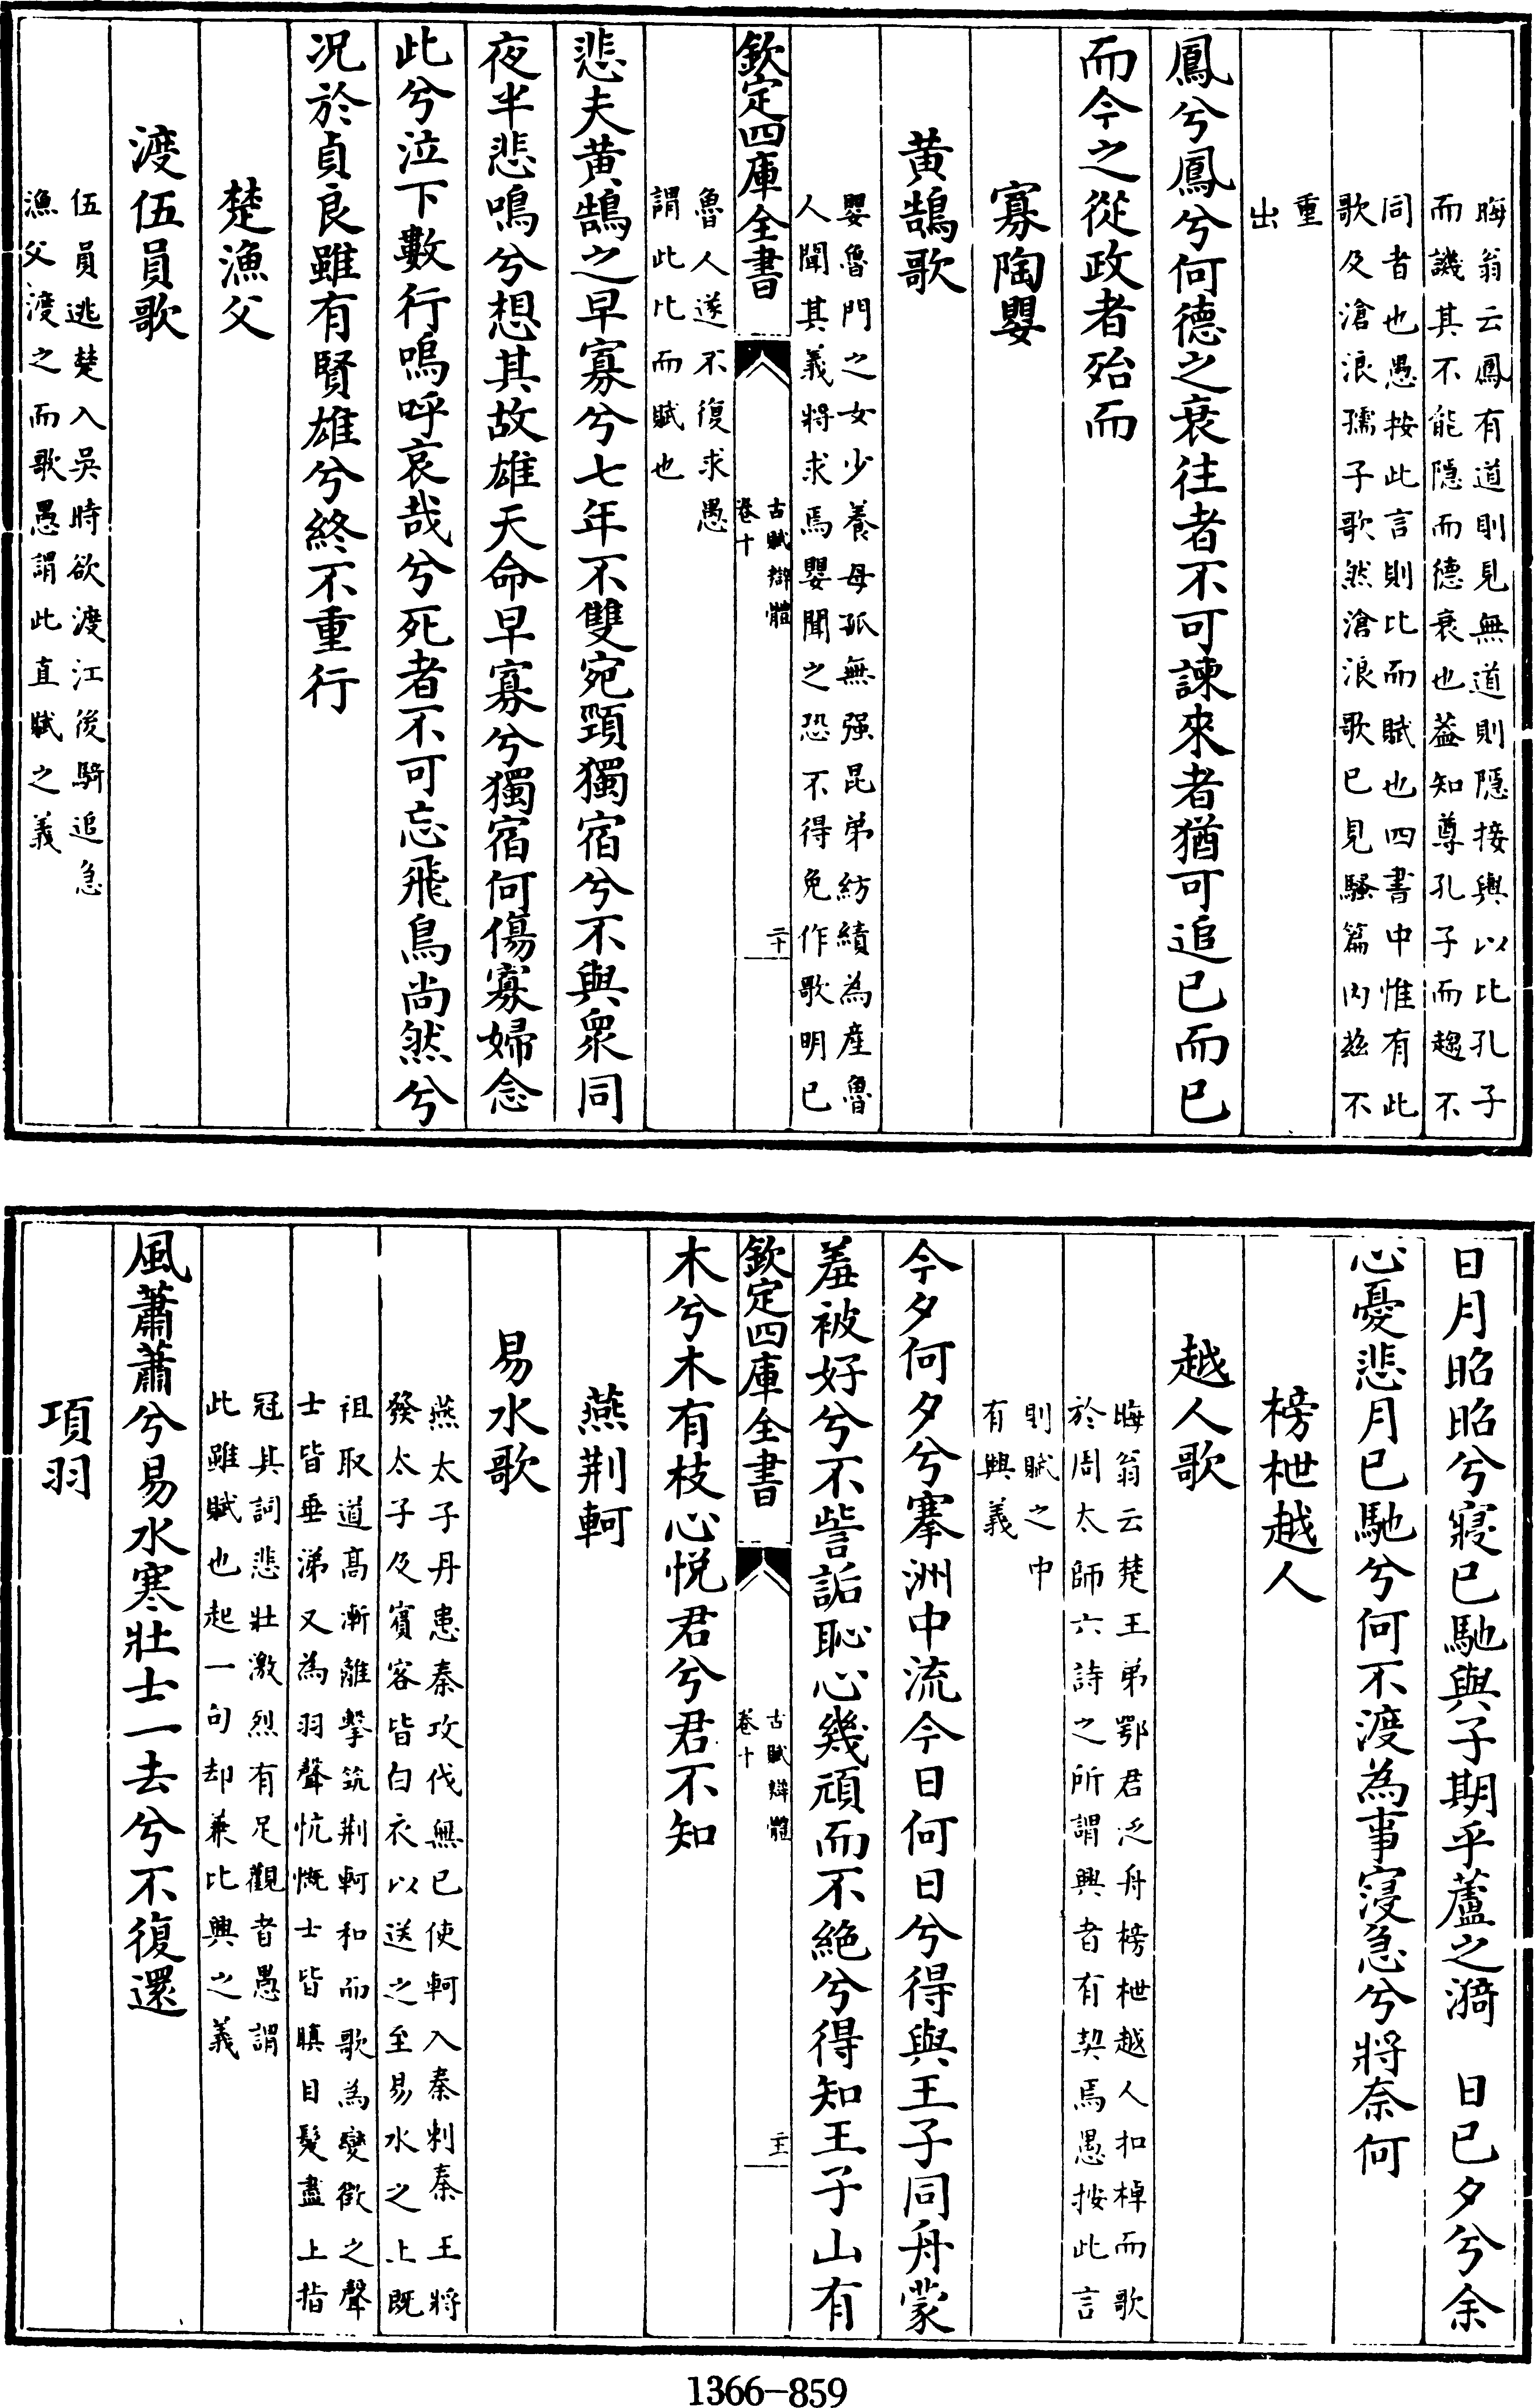 晦翁云鳳有道則見無道則隱接輿以比孔子
而譏其不能隱而德衰也葢知尊孔子而趨不
同者也愚按此言則比而賦也四書中惟有此
歌及滄浪孺子歌然滄浪歌已見騷篇内兹不
重
出
鳳兮鳳兮何德之衰往者不可諫來者猶可追已而已
而今之從政者殆而
寡陶嬰
黄鵠歌
嬰魯門之女少養母孤無强昆弟紡績為產魯
人聞其義將求焉嬰聞之恐不得免作歌明已
欽定四庫全書
古賦辯體
卷十
二十
魯人遂不復求愚
謂此比而賦也
悲夫黄鵠之早寡兮七年不雙宛頸獨宿兮不與衆同
夜半悲鳴兮想其故雄天命早寡兮獨宿何傷寡婦念
此兮泣下數行嗚呼哀哉兮死者不可忘飛鳥尚然兮
况於貞良雖有賢雄兮終不重行
楚漁父
渡伍員歌
伍員逃楚入吳時欲渡江後騎追急
漁父渡之而歌愚謂此直賦之義
日月昭昭兮寢已馳與子期乎蘆之漪 日已夕兮余
心憂悲月已馳兮何不渡為事寖急兮將奈何
榜枻越人
越人歌
晦翁云楚王弟鄂君泛舟榜枻越人扣棹而歌
於周太師六詩之所謂興者有契焉愚按此言
則賦之中
有興義
今夕何夕兮搴洲中流今日何日兮得與王子同舟蒙
羞被好兮不訾詬恥心幾頑而不絶兮得知王子山有
欽定四庫全書
古賦辯體
卷十
二十一
木兮木有枝心悦君兮君不知
燕荆軻
易水歌
燕太子丹患秦攻伐無已使軻入秦刺秦王將
發太子及賓客皆白衣以送之至易水之上既
祖取道高漸離擊筑荆軻和而歌為變徵之聲
士皆垂涕又為羽聲忼慨士皆瞋目髮盡上指
冠其詞悲壯激烈有足觀者愚謂
此雖賦也起一句却兼比興之義
風蕭蕭兮易水寒壯士一去兮不復還
項羽
1366-859